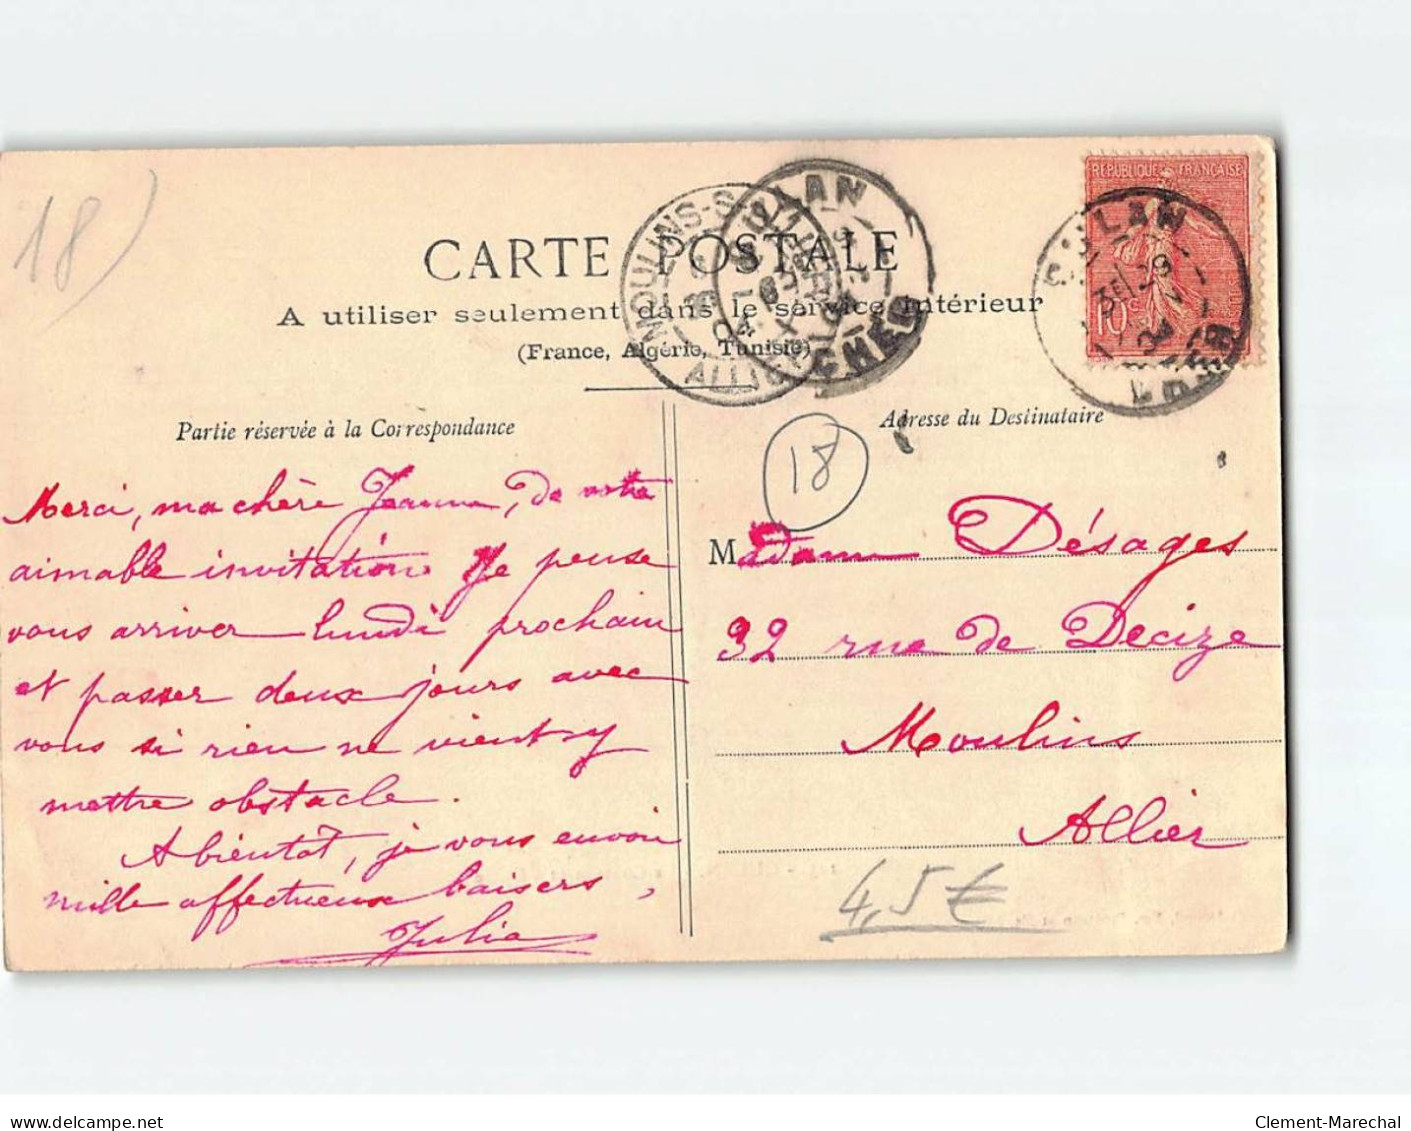 18)
RÉPUBLIQUE FRANÇAISE
10
CULAN
CHER
MOULINS-S-ALLIER
ALLIER
CULAN
CHER
CARTE POSTALE
A utiliser seulement dans le service intérieur
(France, Algérie, Tunisie)
Partie réservée à la Correspondance
Merci, ma chère Jeanne, de votre
aimable invitation je pense
vous arriver lundi prochain
et passer deux jours avec
vous si rien ne vient y
mettre obstacle.
A bientôt, je vous envoie
mille affectueux baisers,
Julia
Adresse du Destinataire
18
Madame Désages
32 rue de Decize
Moulins
Allier
4,5€
www.delcampe.net
Clement-Marechal